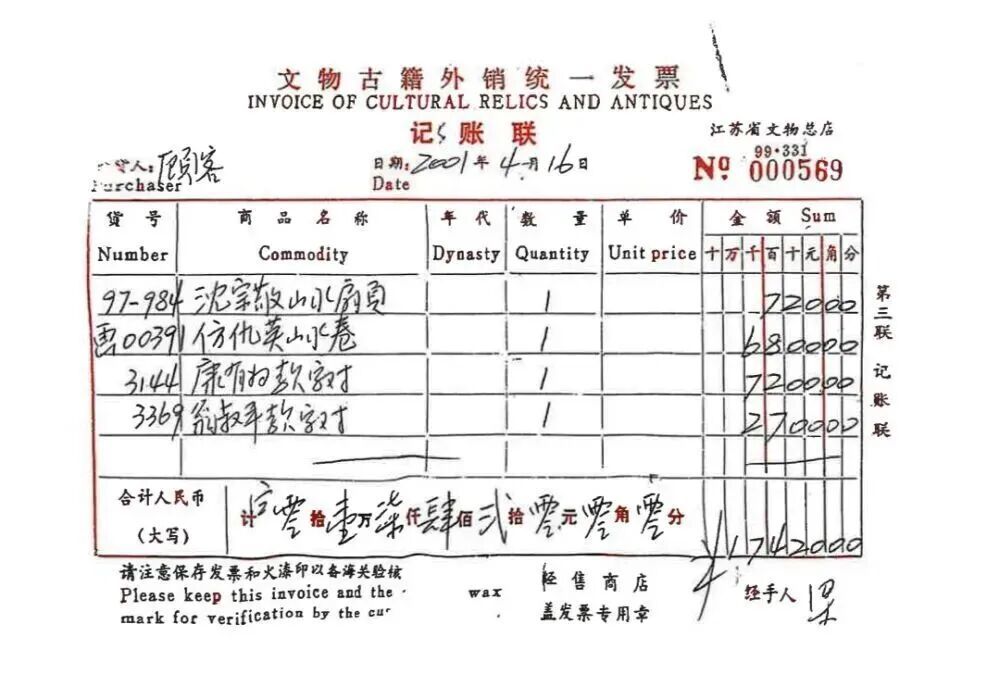 文物古籍外销统一发票
INVOICE OF CULTURAL RELICS AND ANTIQUES
记账联
江苏省文物总店
人: 顾客
Purchaser
日期: 2001年4月16日
Date
99·331
Nº 000569
货号 商品名称 年代 数量 单价 金额 Sum
Number Commodity Dynasty Quantity Unit price 十万千百十元角分
97-984 沈宗敬山水扇页 1 72000
画00391 仿仇英山水卷 1 680000
3144 康有为款字对 1 720000
3369 翁叔平款字对 1 270000
合计人民币
(大写)
计 零拾壹万柒仟肆佰贰拾零元零角零分
¥1742000
第三联 记账联
请注意保存发票和火漆印以备海关验核
Please keep this invoice and the wax
mark for verification by the cus
经售商店
盖发票专用章
经手人 梁